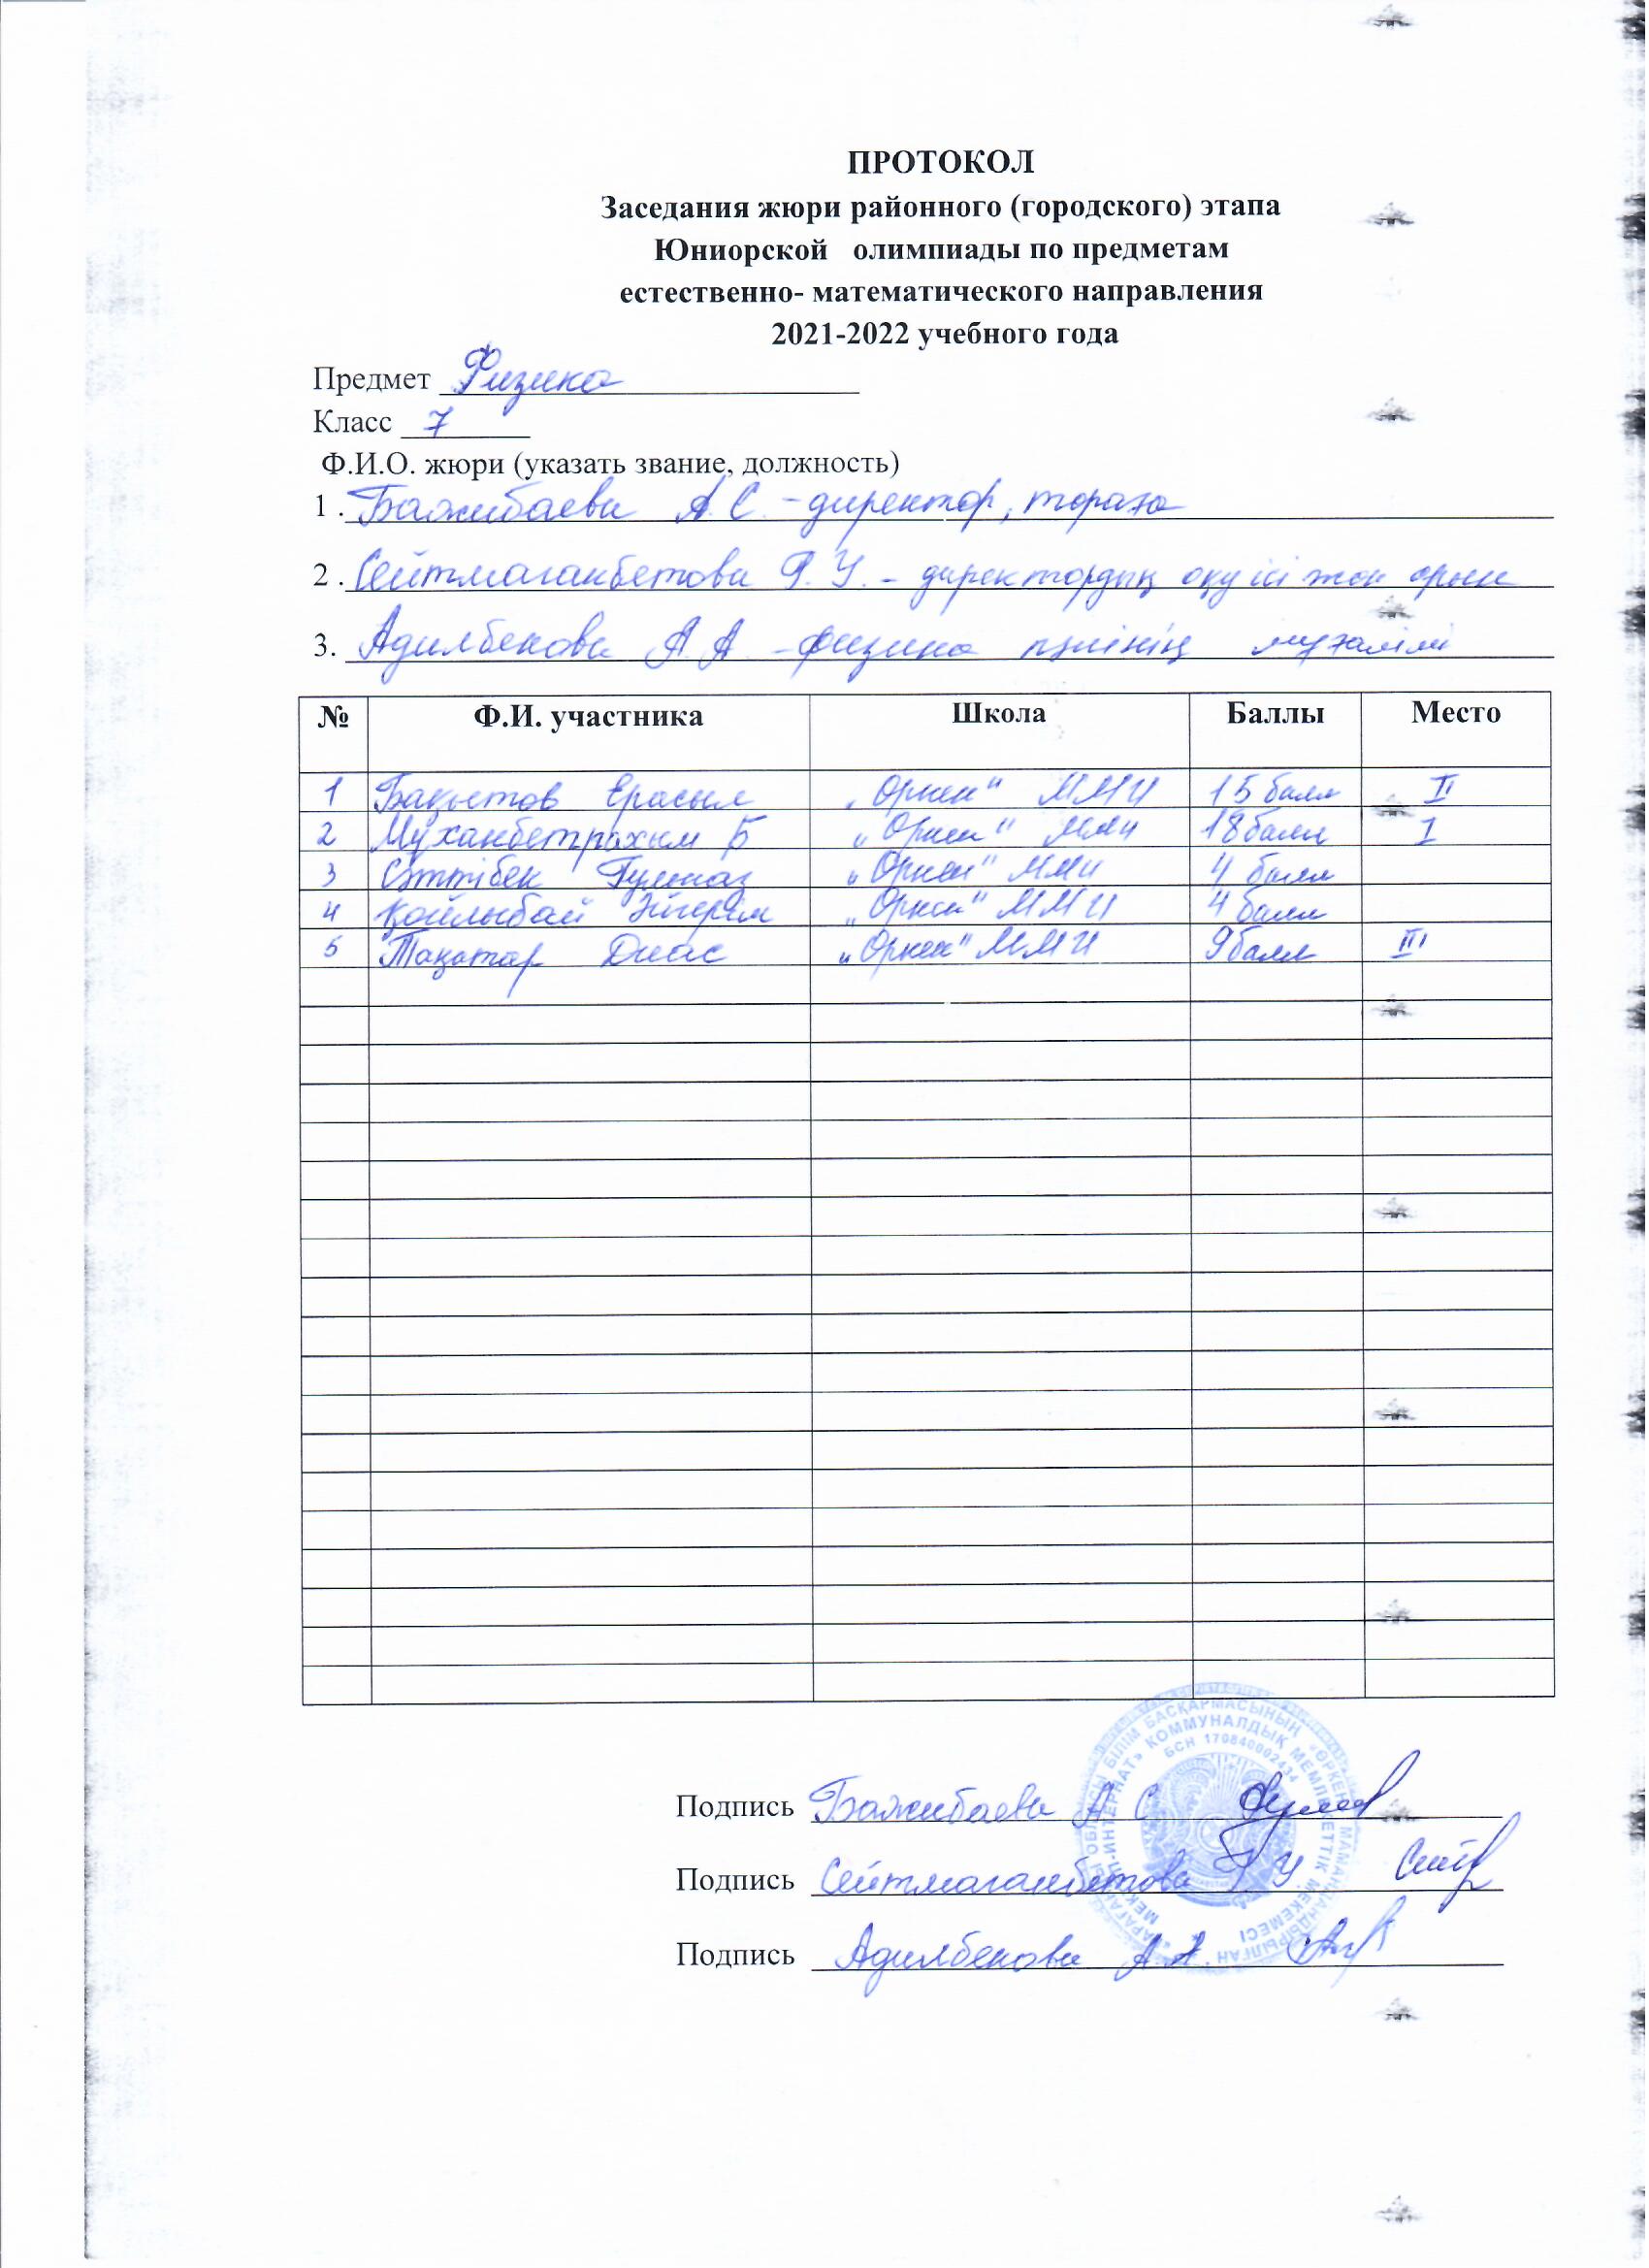 ПРОТОКОЛ
Заседания жюри районного (городского) этапа
Юниорской олимпиады по предметам
естественно- математического направления
2021-2022 учебного года
Предмет Физика
Класс 7
Ф.И.О. жюри (указать звание, должность)
1 . Бажибаева А.С. - директор, төраға
2 . Сейтмаганбетова Г.У. - директордың оқу ісі жөн орын
3. Адилбекова А.А. - физика пәнінің мұғалімі
№ Ф.И. участника Школа Баллы Место
1 Бақытов Ерасыл „Өркен" ММИ 15 балл II
2 Мұханбетрахым Б „Өркен" ММИ 18 балл I
3 Сәттібек „Өркен" ММИ 4 балл
4 Қойлыбай Әйгерім „Өркен" ММИ 4 балл
5 Тақатар Диас „Өркен" ММИ 9 балл III
Подпись Бажибаева А С
Подпись Сейтмаганбетова Г.У.
Подпись Адилбекова А.А.
БІЛІМ БАСҚАРМАСЫНЫҢ «ӨРКЕН» МАМАНДАНДЫРЫЛҒАН
КОММУНАЛДЫҚ МЕМЛЕКЕТТІК МЕКЕМЕСІ
БСН 170840002434